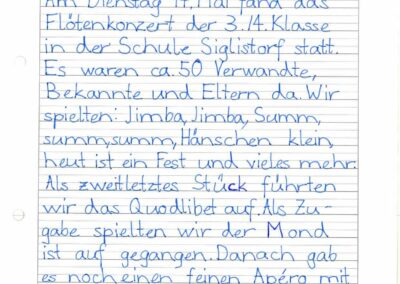 Am Dienstag 17. Mai fand das
Flötenkonzert der 3./4. Klasse
in der Schule Siglistorf statt.
Es waren ca. 50 Verwandte,
Bekannte und Eltern da. Wir
spielten: Jimba, Jimba, Summ,
summ, summ, Hänschen klein,
heut ist ein Fest und vieles mehr.
Als zweitletztes Stück führten
wir das Quodlibet auf. Als Zu-
gabe spielten wir der Mond
ist auf gegangen. Danach gab
es noch einen feinen Apéro mit